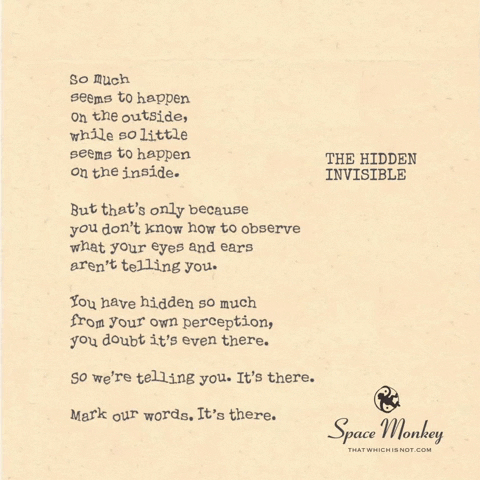 So much
seems to happen
on the outside,
while so little
seems to happen
on the inside.
But that's only because
you don't know how to observe
what your eyes and ears
aren't telling you.
You have hidden so much
from your own perception,
you doubt it's even there.
So we're telling you. It's there.
Mark our words. It's there.
THE HIDDEN
INVISIBLE
Space Monkey
THATWHICHISNOT.COM